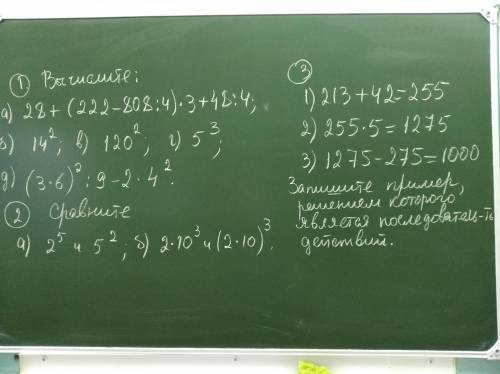 ① Вычислите:
а) 28+(222-808:4)·3+48:4;
б) 14²; в) 120²; г) 5³;
д) (3·6)²:9-2·4².
② Сравните
а) 2⁵ и 5²; б) 2·10³ и (2·10)³.
③
1) 213+42=255
2) 255·5=1275
3) 1275-275=1000
Запишите пример,
решением которого
является последоват-ть
действий.